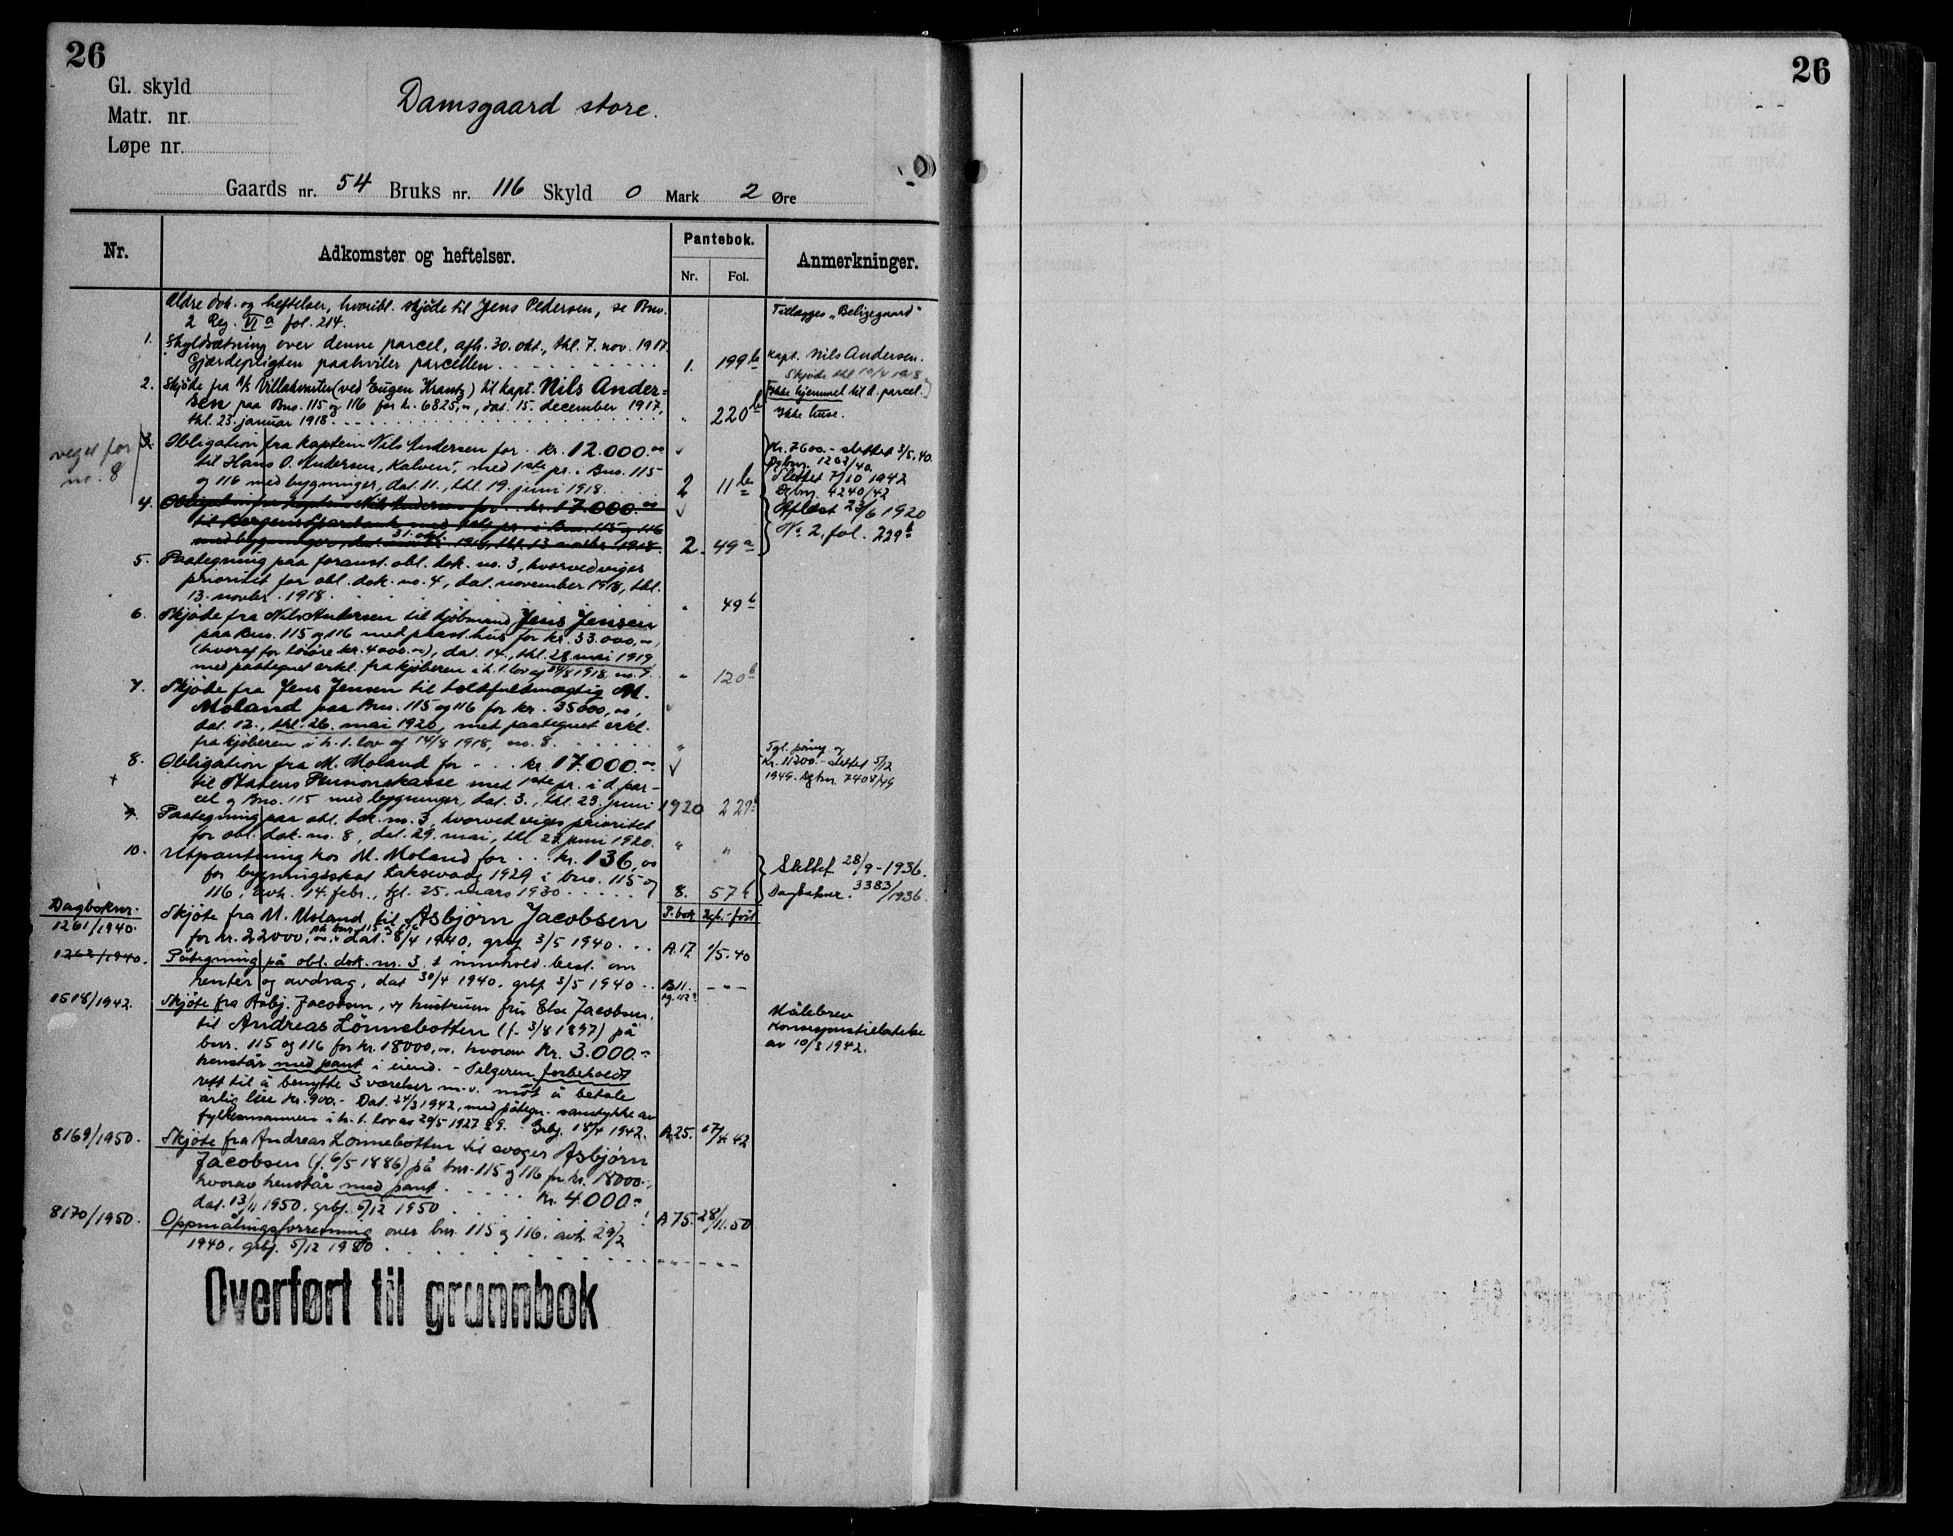 26
26
Gl. skyld
Damsgaard store.
Matr. nr.
Løpe nr.
Gaards nr. 54 Bruks nr. 116 Skyld 0 Mark 2 Øre
Nr.
Adkomster og heftelser.
Pantebok.
Nr.
Fol.
Anmerkninger.
Ældre dok. og heftelser, hvoribl. skjøde til Jens Pedersen, se Bno.
2 Reg. VI a fol. 214.
Tillægges „Beligegaard"
1. Skyldsætning over denne parcel, afh. 30. okt., thl. 7. nov. 1917.
Gjærdepligten paahviler parcellen . . . 1. 199 b
Kapt. Nils Andersen.
Skjøde thl.
2. Skjøde fra A/S Villakvarter (ved Eugen Krantz) til kapt. Nils Ander=
sen paa Bno. 115 og 116 for kr. 6825,00, dat. 15. december 1917,
thl. 23. januar 1918 . . . " 220 b
Ikke hjemmel til d. parcel.
Ikke huse.
veget for
no. 8
3. Obligation fra kaptein Nils Andersen for . . kr. 12.000.00
til Hans O. Andersen, Kalven, med 1ste pr. i Bno. 115
og 116 med bygninger, dat. 11., thl. 19. juni 1918. 2 11 b
Kr. 7600.- slettet 3/5.40.
Dgbnr. 1262/40.
Slettet 7/10 1942
Dgbnr. 4240/42
4. Obligation fra kaptein Nils Andersen for . . kr. 17.000.00
til Bergens Sparebank med 1ste pr. i Bno. 115 og 116
med bygninger, dat. 31. okt. 1918, thl. 13. novbr. 1918. 2. 49 a
Aflæst 23/6 1920
No 2. fol. 229 b
5. Paategning paa foranst. obl. dok. no. 3, hvorved viges
prioritet for obl. dok. no. 4, dat. november 1918, thl.
13. novbr. 1918. " 49 b
6. Skjøde fra Nils Andersen til kjøbmand Jens Jensen
paa Bno. 115 og 116 med paast. hus for kr. 33.000,00,
(hvoraf for løsøre kr. 4000.00), dat. 14., thl. 28 mai 1919
med paategnet erkl. fra kjøberen i h. t. lov af 14/8 1918, no. 8. " 120 b
7. Skjøde fra Jens Jensen til toldfuldmægtig M.
Moland paa Bno. 115 og 116 for kr. 35000,00,
dat. 12., thl. 26. mai 1920, med paategnet erkl.
fra kjøberen i h. t. lov af 14/8 1918, no. 8. . . . "
8. Obligation fra M. Moland for - . . kr. 17.000.00
til Statens Pensionskasse med 1ste pr. i d. par-
cel og Bno. 115 med bygninger, dat. 3., thl. 23. juni 1920 229 b
Kr. 11200.- slettet 5/12
1949. Dgbnr. 7408/49
9. Paategning paa obl. dok. no. 3, hvorved viges prioritet
for obl. dok. no. 8, dat. 29. mai, thl. 23. juni 1920. " "
10. Utpantning hos M. Moland for . . . kr. 136,00
for bygningsskat Laksevaag 1929 i bno. 115 og
116, avh. 14. febr., tgl. 25. mars 1930 . . . 8. 57 b
Slettet 28/9-1936.
Dagboknr. 3383/1936.
Dagboknr.
P.bok
1261/1940. Skjøte fra M. Moland til Asbjørn Jacobsen
på bnr. 115 og 116
for kr. 22000,00. Dat. 8/4 1940, grbf. 3/5 1940 . . . A.17 1/5.40
1262/1940. Påtegning på obl. dok. nr. 3, i innhold. best. om
renter og avdrag, dat 30/4 1940, grbf. 3/5 1940 . . B11. - " -
1518/1942. Skjøte fra Asbj. Jacobsen, og hustruen fru Else Jacobsen,
til Andreas Lønnebotten (f. 3/8 1897) på
bnr. 115 og 116 for kr. 18000,00. hvorav Kr. 3.000.-
henstår med pant i eiend. - Selgeren forbeholdt
rett til å benytte 3 værelser m.v. mot å betale
årlig leie kr. 900.- Dat. 24/3 1942, med påtegn. samtykke av
fylkesmannen i h. t. lov av 20/5 1927 § 9. Grbf. 18/4 1942. A25. 17/4 42
Målebrev
Konsesjonstillatelse
av 10/3 1942.
8169/1950. Skjøte fra Andreas Lønnebotten til svoger Asbjørn
Jacobsen (f. 6/5 1886) på bnr. 115 og 116 for kr. 18000.-,
hvorav henstår med pant . . . . . Kr. 4000.-
dat. 13/11 1950, grbf. 5/12 1950 . . . A75. 28/11.50
8170/1950. Oppmålingsforretning over bnr. 115 og 116. avh. 29/2
1940, grbf. 5/12 1950 . . .
Overført til grunnbok